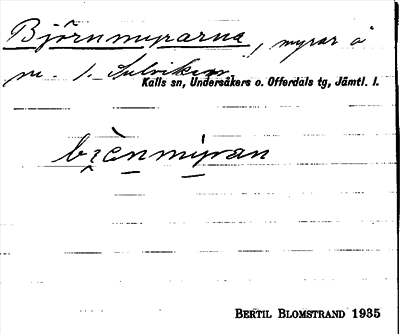 Björnmyrarna, myrar å
m. 1. Sulviken
Kalls sn, Undersåkers o. Offerdals tg, Jämtl. l.
bɀènmyran
BERTIL BLOMSTRAND 1935